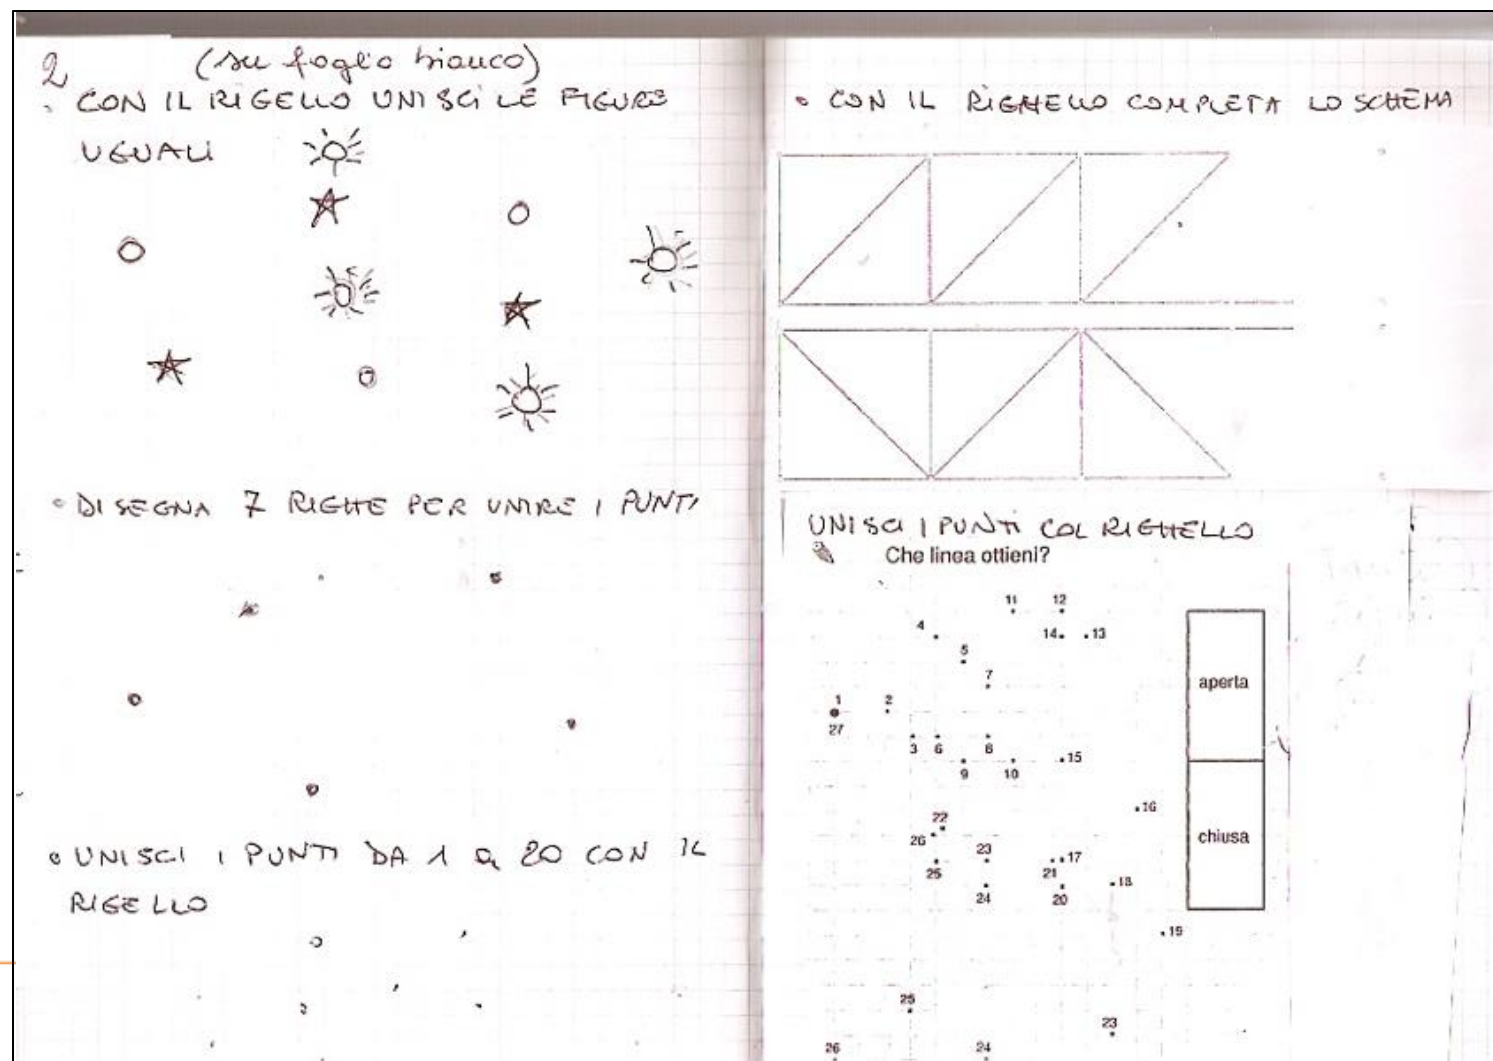 2 (su foglio bianco)
• CON IL RIGELLO UNISCI LE FIGURE
UGUALI
• DISEGNA 7 RIGHE PER UNIRE I PUNTI
• UNISCI I PUNTI DA 1 a 20 CON IL
RIGELLO
• CON IL RIGHELLO COMPLETA LO SCHEMA
UNISCI I PUNTI COL RIGHELLO
Che linea ottieni?
11 12
4 14 13
5
7
1 2
27
3 6 8 15
9 10
16
22
26 23 17
25 21
24 20 18
19
25
23
26 24
aperta
chiusa